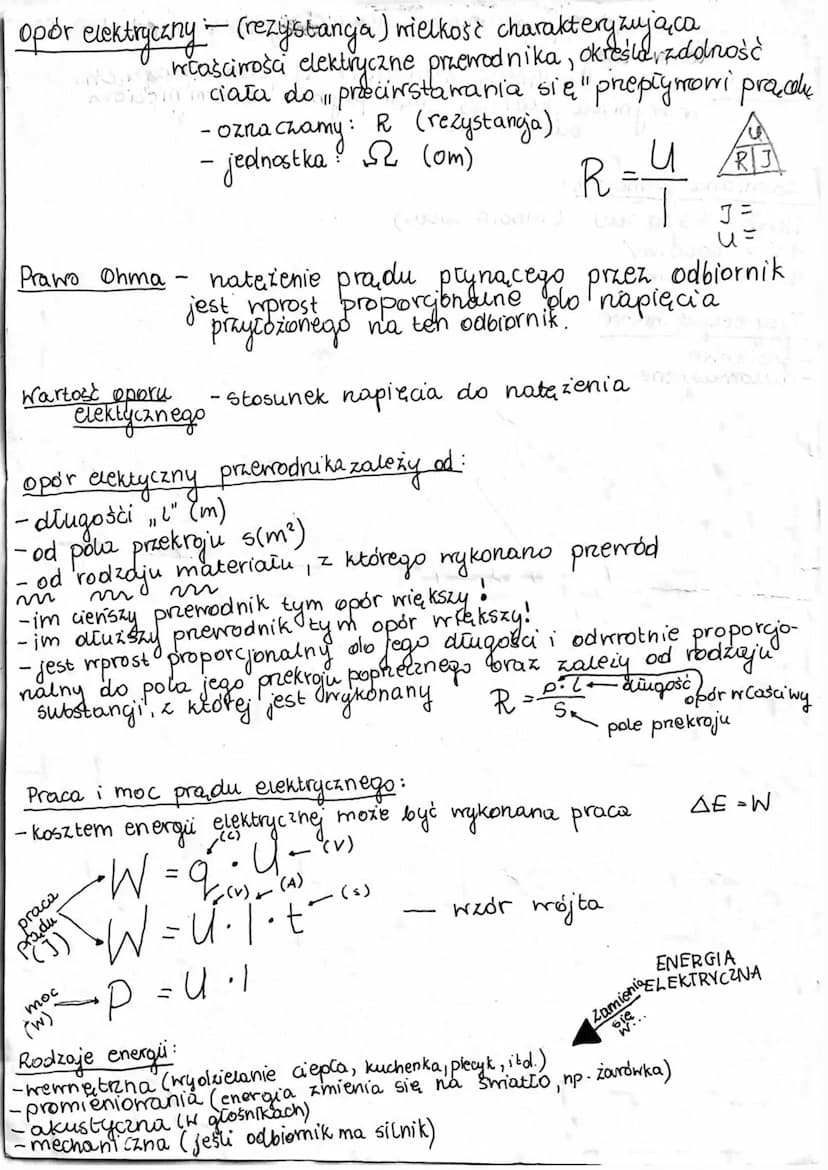 opór elektryczny - (rezystancja) wielkość charakteryzująca
właściwości elektryczne przewodnika, określa zdolność
ciała do „przeciwstawania się" przepływowi prądu
- oznaczamy: R (rezystancja)
- jednostka: Ω (om)
R = U/I
U
R I
I =
U =
Prawo Ohma - natężenie prądu płynącego przez odbiornik
jest wprost proporcjonalne do napięcia
przyłożonego na ten odbiornik.
Wartość oporu - stosunek napięcia do natężenia
elektycznego
opór elektyczny przewodnika zależy od:
- długości „l" (m)
- od pola przekroju s(m²)
- od rodzaju materiału, z którego wykonano przewód
- im cieńszy przewodnik tym opór większy!
- im dłuższy przewodnik tym opór większy!
- jest wprost proporcjonalny do jego długości i odwrotnie proporcjo-
nalny do pola jego przekroju poprzecznego oraz zależy od rodzaju
substancji, z której jest wykonany
R = ρ·l/S
długość
opór właściwy
pole przekroju
Praca i moc prądu elektrycznego:
- kosztem energii elektrycznej może być wykonana praca ΔE = W
W = q · U
(C) (V)
praca prądu (J)
W = U · I · t
(V) (A) (s)
— wzór wójta
moc (W)
P = U · I
ENERGIA
ELEKTRYCZNA
zamienia
się
w...
Rodzaje energii:
- wewnętrzna (wydzielanie ciepła, kuchenka, piecyk, itd.)
- promieniowania (energia zmienia się na światło, np. żarówka)
- akustyczna (w głośnikach)
- mechaniczna (jeśli odbiornik ma silnik)